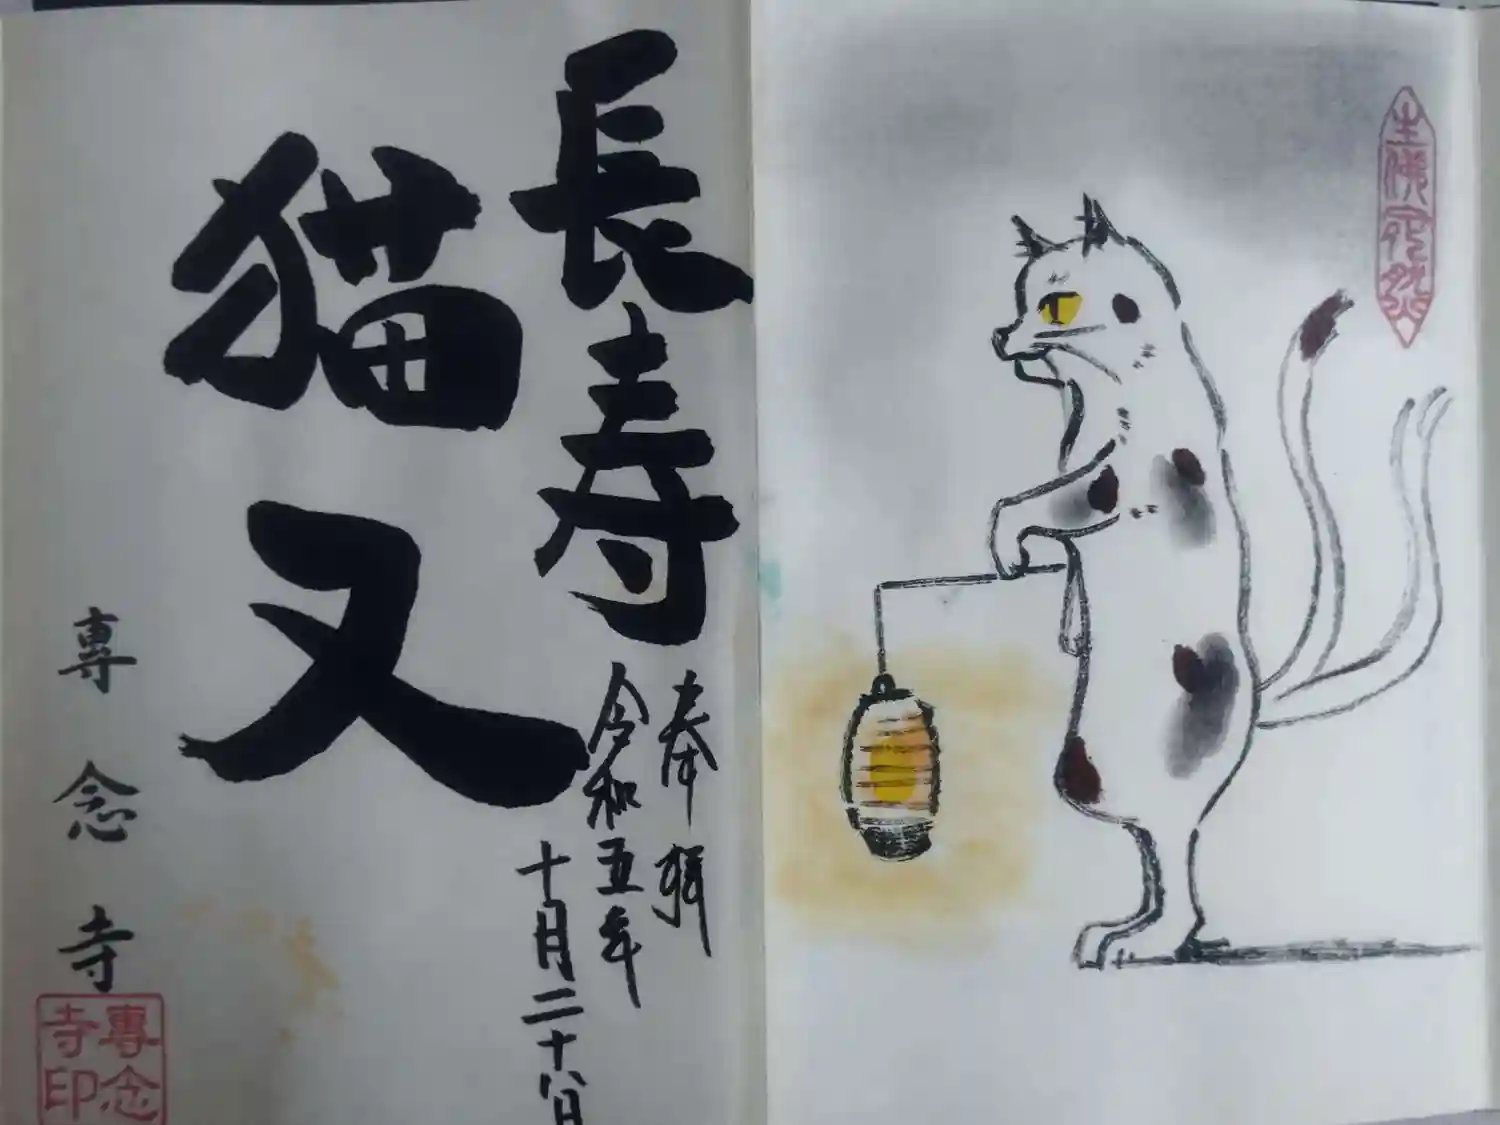 長寿
猫又
奉拝
令和五年
十月二十八日
專念寺
專念
寺印